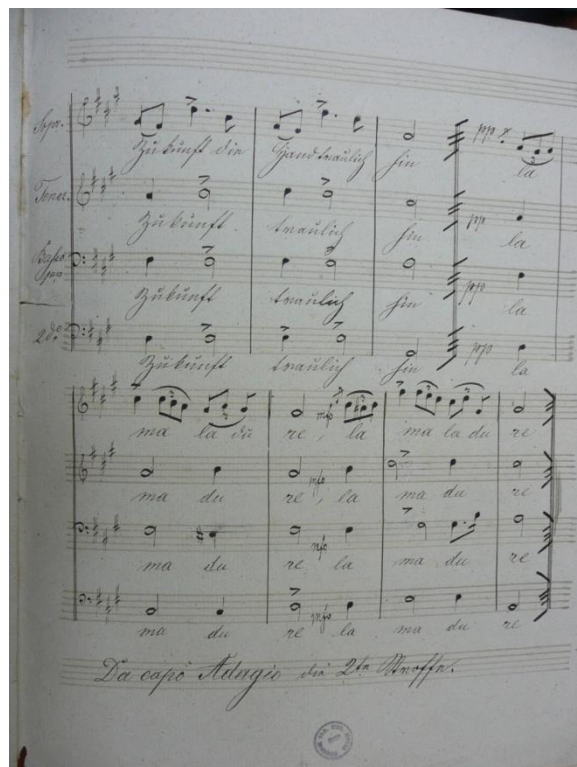 Sopr. Zukunft die Hand traulich hin ppp la
Tenor. Zukunft traulich hin pp la
Basso pmo Zukunft traulich hin ppp la
2do Zukunft traulich hin ppp la
ma la du re, mfo la ma la du re
ma du re, mfo la ma du re
ma du re mfo la ma du re
ma du re mfo la ma du re
Da capo Adagio die 2te Stroffe.